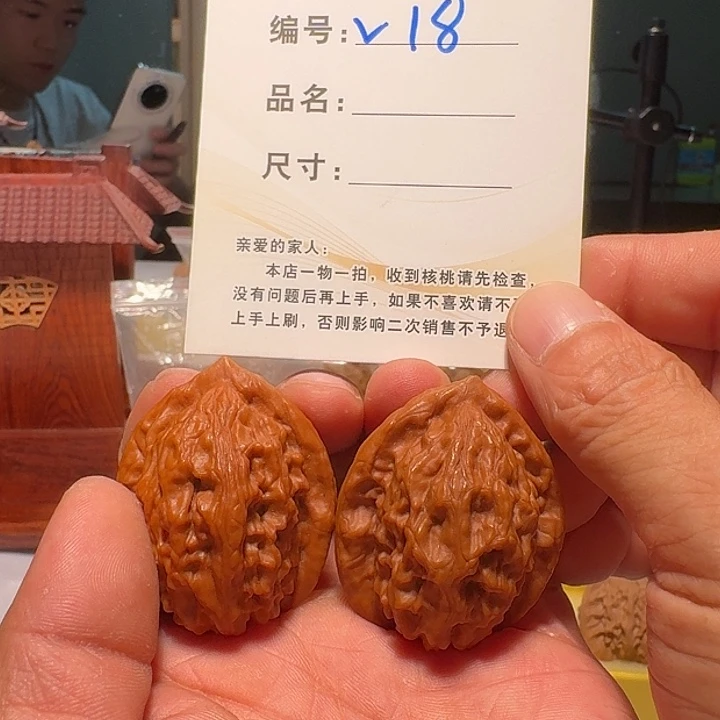 编号：V18
品名：
尺寸：
亲爱的家人：
本店一物一拍，收到核桃请先检查，
没有问题后再上手，如果不喜欢请不
上手上刷，否则影响二次销售不予退